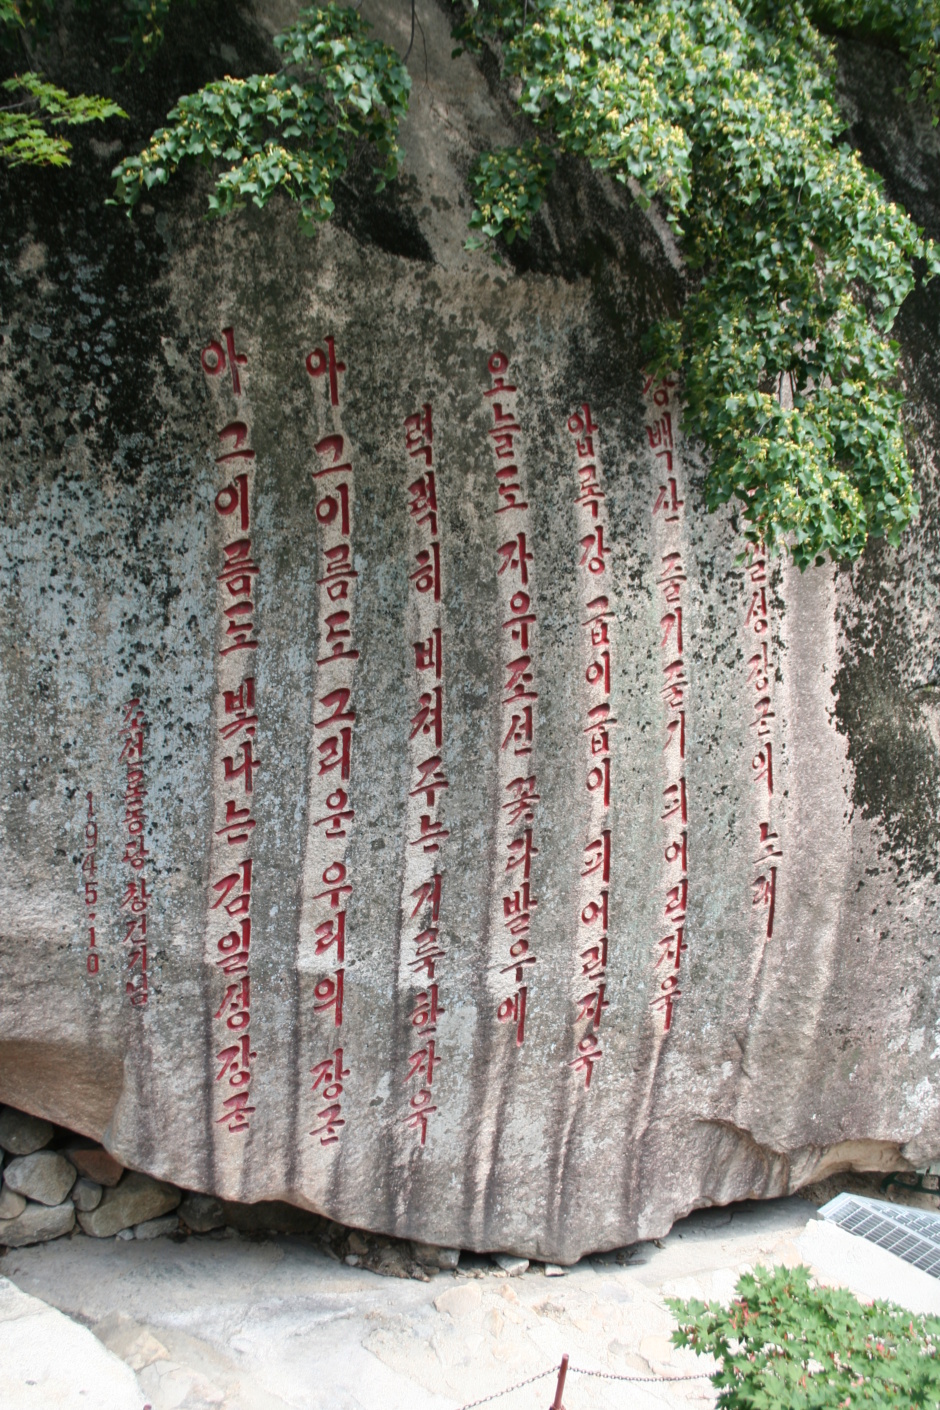 일성장군의 노래
장백산 줄기줄기 피어린자욱
압록강 굽이굽이 피어린자욱
오늘도 자유조선 꽃다발우에
력력히 비쳐주는 거룩한자욱
아 그이름도 그리운 우리의 장군
아 그이름도 빛나는 김일성장군
조선로동당 창건기념
1945.10